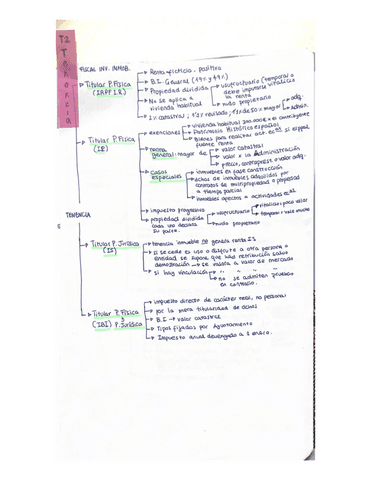 T2
Tenencia
FISCAL INV. INMOB.
Titular P. Física
(IRPF I.R)
Renta ficticia, positiva
B.I. General
Propiedad dividida
usufructuario (temporal o vitalicio)
debe imputarse
la renta
nudo propietario
No se aplica a
vivienda habitual
Titular P. Física
(IP)
exenciones
vivienda habitual 300.000€ x contribuyente
Patrimonio Histórico español
Bienes para realizar act. ec
fuente renta
norma
general: mayor de
valor catastral
valor x la Administración
precio, contraprest. o valor adq.
casos
especiales
inmuebles en fase construcción
dchos de inmuebles adquiridos por
contratos de multipropiedad o propiedad
a tiempo parcial
inmuebles afectos a actividades ec
impuesto progresivo
propiedad dividida
cada uno declara
su parte.
usufructuario
vitalicio: poco valor
temporal: vale mucho
nudo propietario
TENENCIA
Titular P. Jurídica
(IS)
tenencia inmueble no genera renta IS
Si se cede el uso o disfrute a otra persona o
entidad se supone que hubo retribución salvo
demostración → se valora a valor de mercado
si hay vinculación
" " " "
no se admiten pruebas
en contrario.
Titular P. Física
y
(IBI) P. Jurídica
impuesto directo de carácter real, no personal
por la mera titularidad de dchos
B.I → valor catastral
Tipos fijados por Ayuntamiento
Impuesto anual devengado a 1 enero.